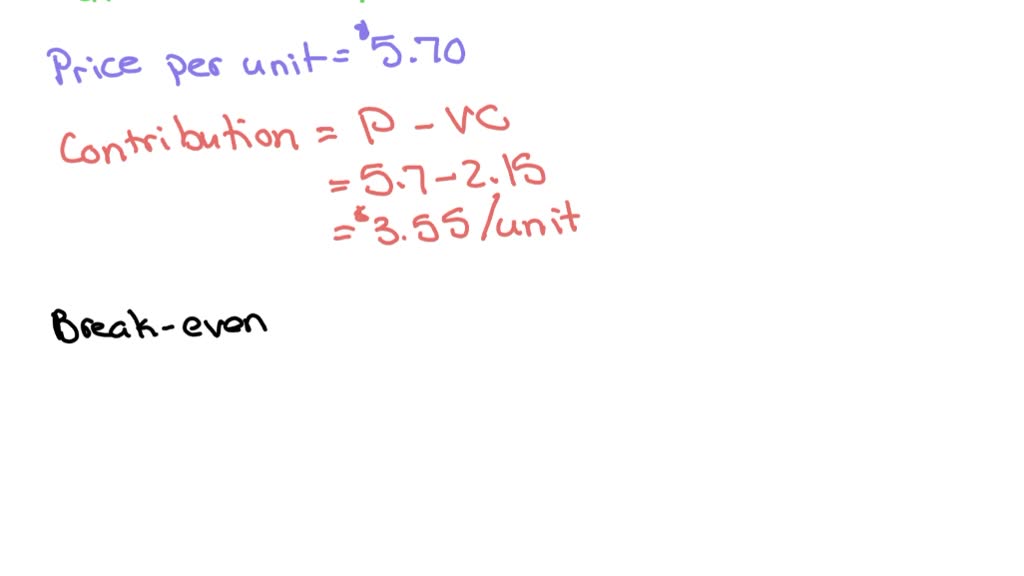 Price per unit = $5.70
Contribution = P - VC
= 5.7 - 2.15
= $3.55/unit
Break-even